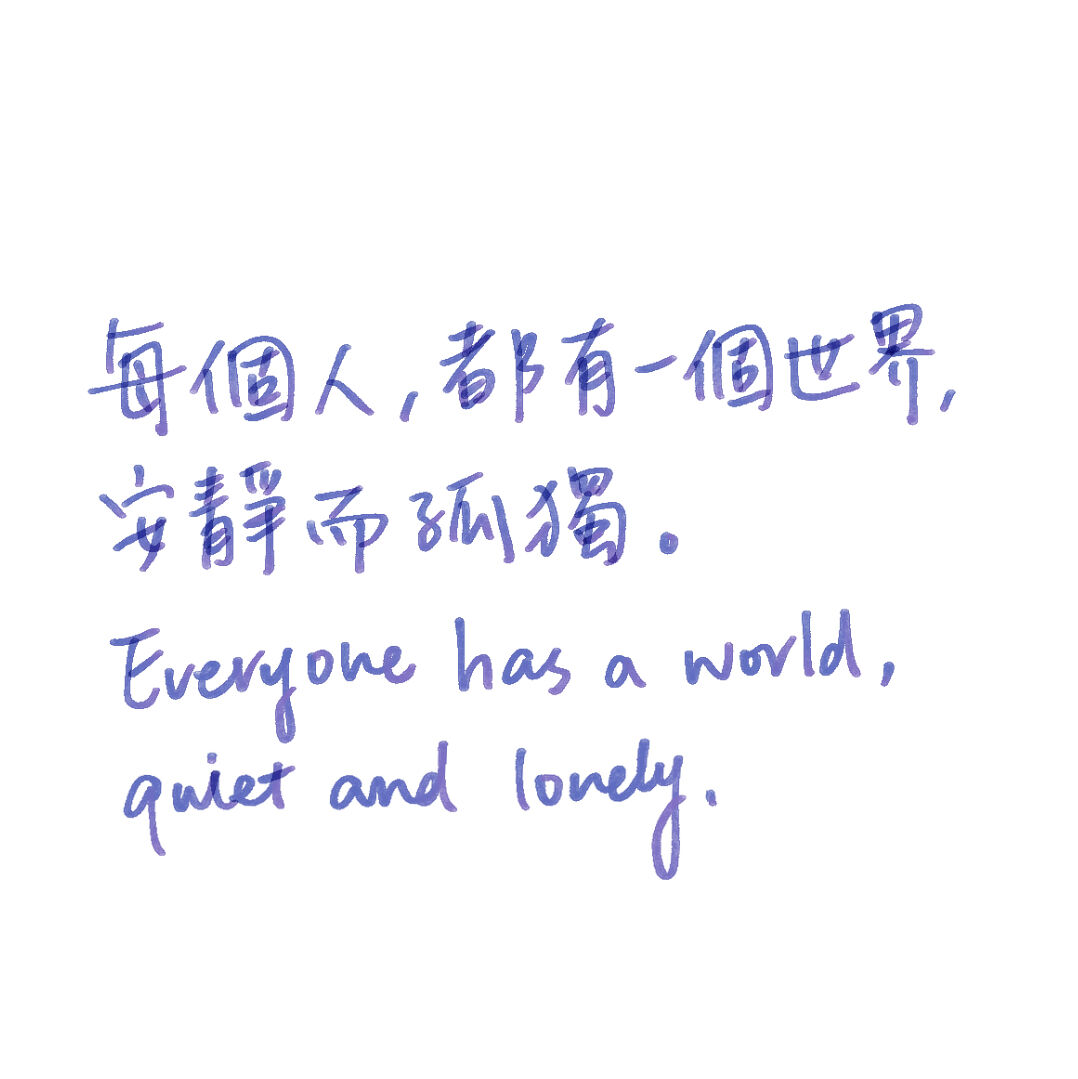 每個人,都有一個世界,
安靜而孤獨。
Everyone has a world,
quiet and lonely.